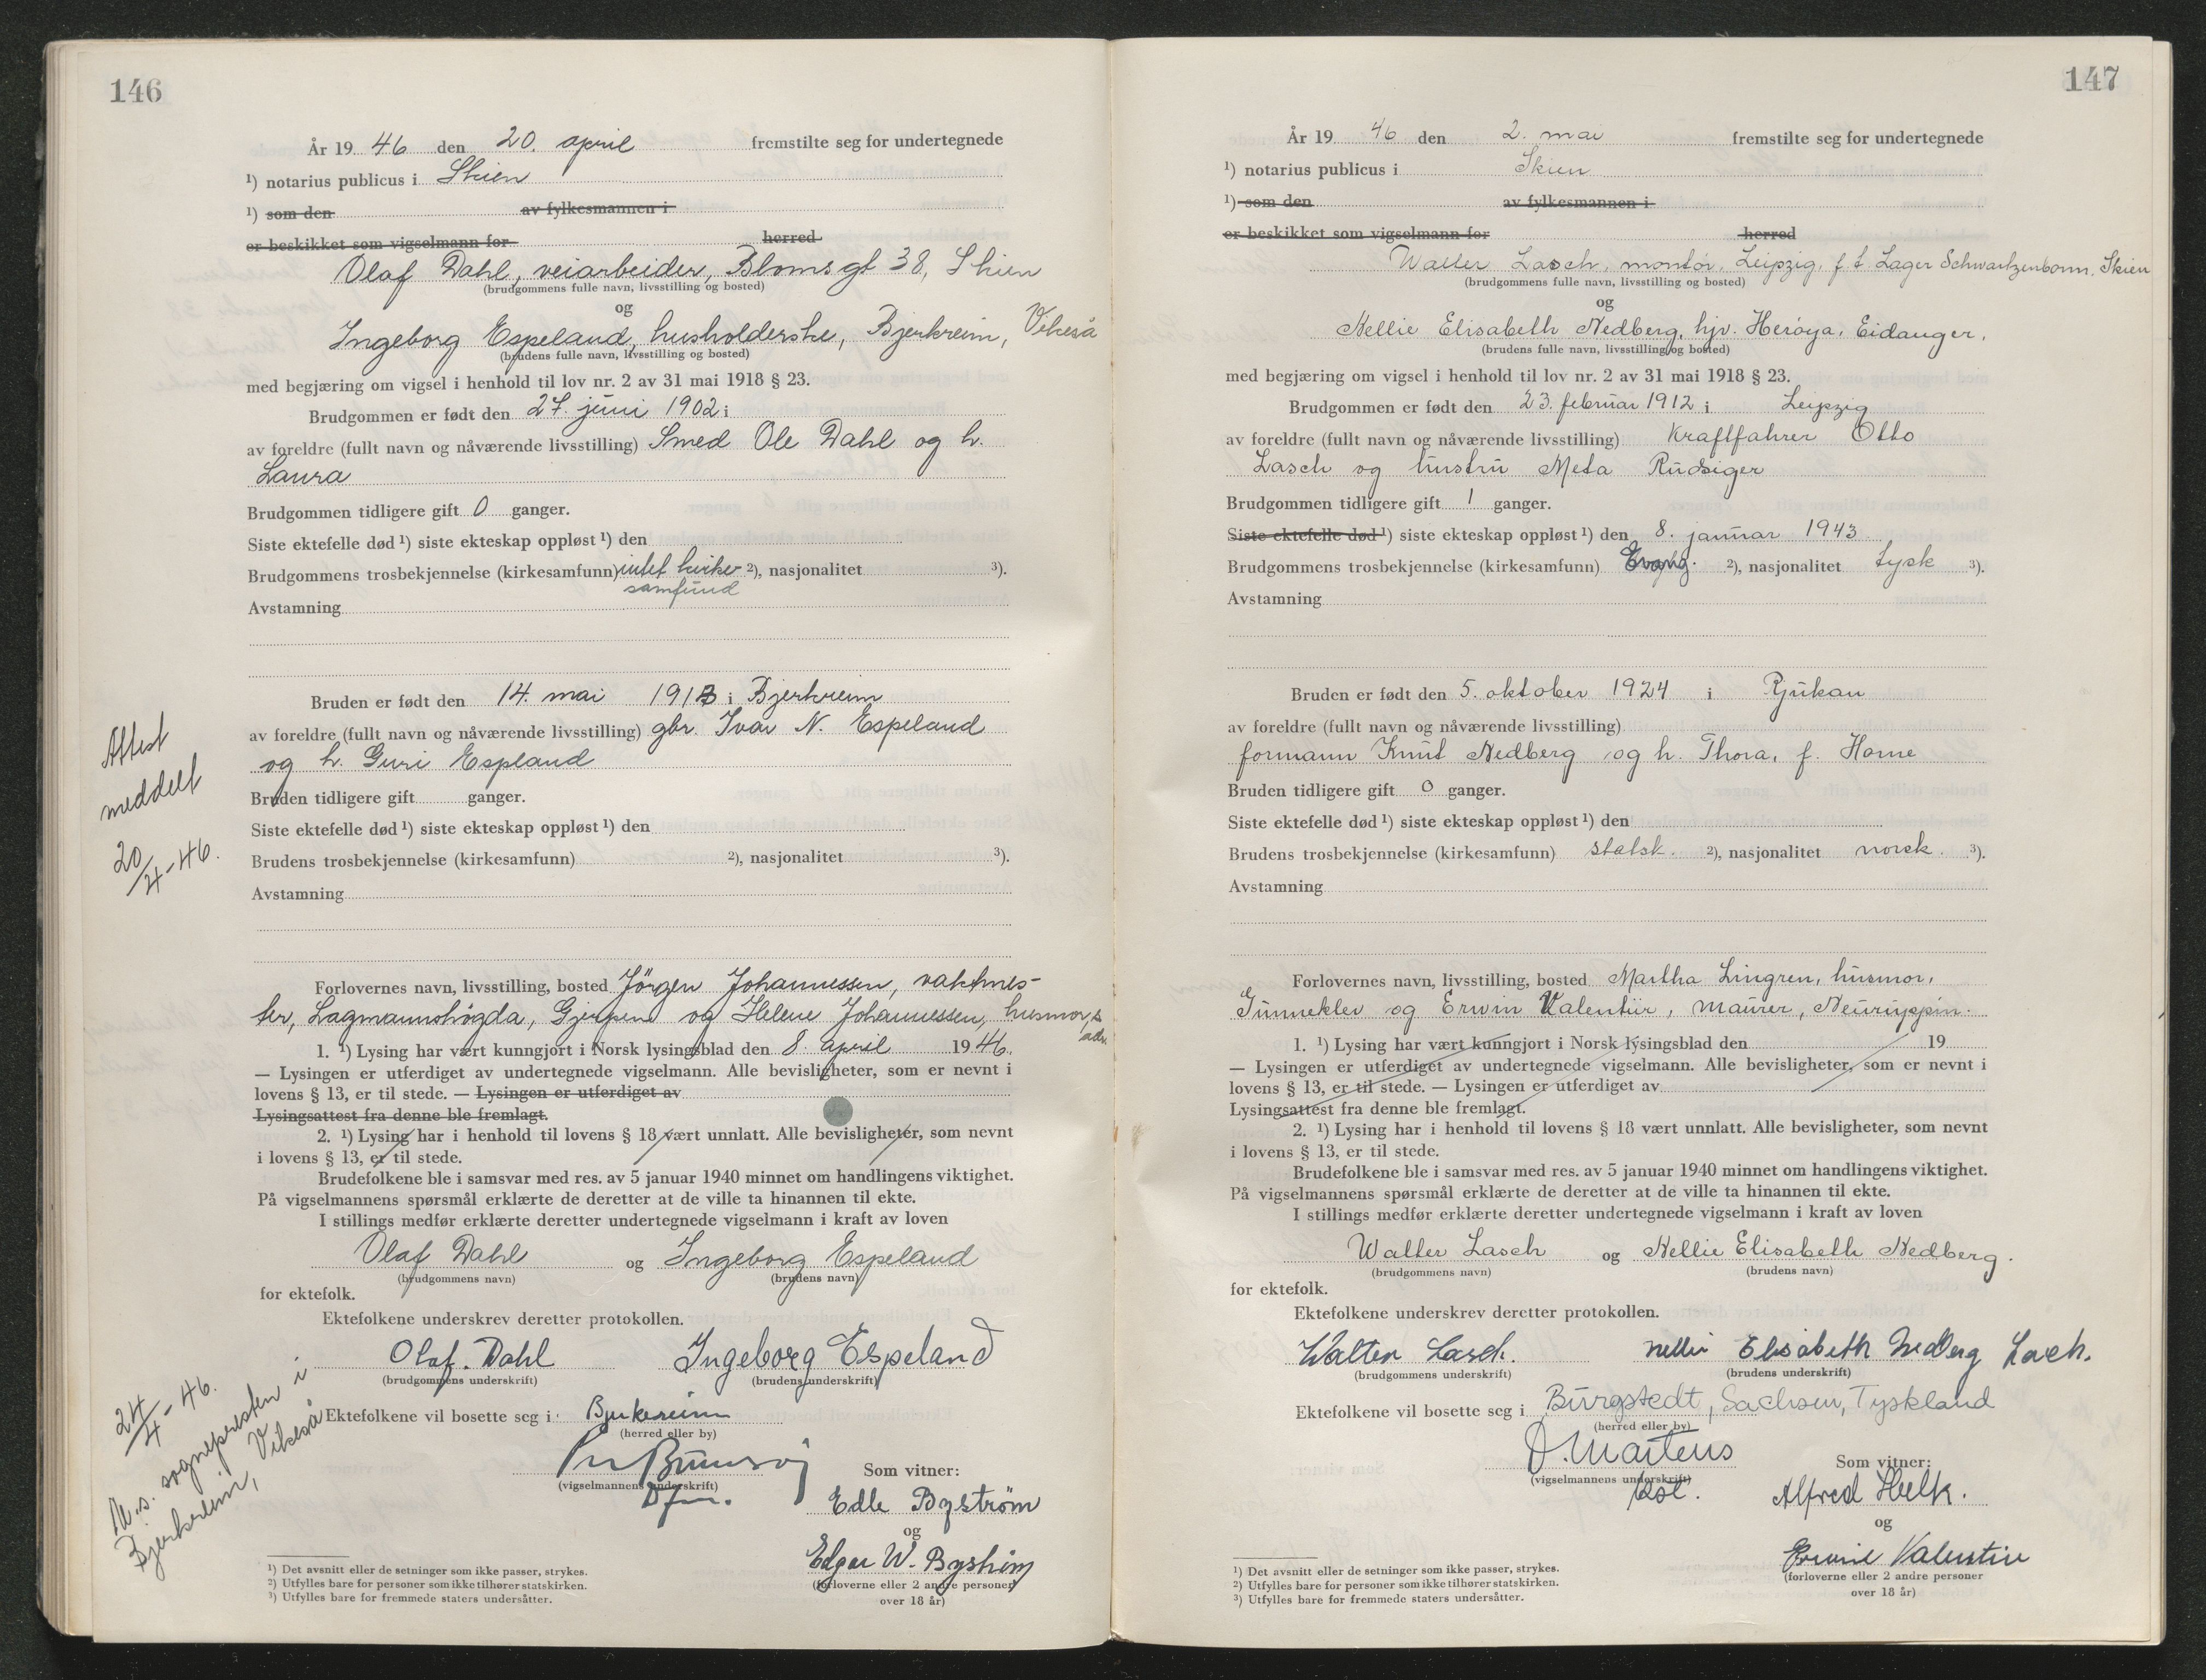 146
År 19 46 den 20. april fremstilte seg for undertegnede
¹) notarius publicus i Skien
¹) som den av fylkesmannen i
er beskikket som vigselmann for herred
Olaf Dahl, veiarbeider, Blomsgt 38, Skien
(brudgommens fulle navn, livsstilling og bosted)
og
Ingeborg Espeland, husholderske, Bjerkreim, Vikeså
(brudens fulle navn, livsstilling og bosted)
med begjæring om vigsel i henhold til lov nr. 2 av 31 mai 1918 § 23.
Brudgommen er født den 27. juni 1902 i
av foreldre (fullt navn og nåværende livsstilling) Smed Ole Dahl og h.
Laura
Brudgommen tidligere gift 0 ganger.
Siste ektefelle død ¹) siste ekteskap oppløst ¹) den
Brudgommens trosbekjennelse (kirkesamfunn) intet kirke- ²), nasjonalitet ³).
samfund
Avstamning
Bruden er født den 14. mai 1913 i Bjerkreim
av foreldre (fullt navn og nåværende livsstilling) gbr. Ivar N. Espeland
og h. Guri Espland
Bruden tidligere gift ganger.
Siste ektefelle død ¹) siste ekteskap oppløst ¹) den
Brudens trosbekjennelse (kirkesamfunn) ²), nasjonalitet ³).
Avstamning
Attest
meddelt
20/4-46.
Forlovernes navn, livsstilling, bosted Jörgen Johannessen, vaktmes-
ter, Lagmannshögda, Gjerpen og Helene Johannessen, husmor, s
adr.
1. ¹) Lysing har vært kunngjort i Norsk lysingsblad den 8. april 1946.
— Lysingen er utferdiget av undertegnede vigselmann. Alle bevisligheter, som er nevnt i
lovens § 13, er til stede. — Lysingen er utferdiget av
Lysingsattest fra denne ble fremlagt.
2. ¹) Lysing har i henhold til lovens § 18 vært unnlatt. Alle bevisligheter, som nevnt
i lovens § 13, er til stede.
Brudefolkene ble i samsvar med res. av 5 januar 1940 minnet om handlingens viktighet.
På vigselmannens spørsmål erklærte de deretter at de ville ta hinannen til ekte.
I stillings medfør erklærte deretter undertegnede vigselmann i kraft av loven
Olaf Dahl og Ingeborg Espeland
(brudgommens navn) (brudens navn)
for ektefolk.
Ektefolkene underskrev deretter protokollen.
Olaf. Dahl Ingeborg Espeland
(brudgommens underskrift) (brudens underskrift)
Ektefolkene vil bosette seg i Bjerkreim
(herred eller by)
(vigselmannens underskrift)
Som vitner:
Edle Byström
og
Edgar W. Byström
(forloverne eller 2 andre personer
over 18 år)
24/4-46.
M.s. sognepresten i
Bjerkreim, Vikeså
¹) Det avsnitt eller de setninger som ikke passer, strykes.
²) Utfylles bare for personer som ikke tilhører statskirken.
³) Utfylles bare for fremmede staters undersåtter.
147
År 19 46 den 2. mai fremstilte seg for undertegnede
¹) notarius publicus i Skien
¹) som den av fylkesmannen i
er beskikket som vigselmann for herred
Walter Lasch, montör, Leipzig, f.t. Lager Schwartzenborn, Skien
(brudgommens fulle navn, livsstilling og bosted)
og
Nellie Elisabeth Nedberg, hjv. Heröya, Eidanger,
(brudens fulle navn, livsstilling og bosted)
med begjæring om vigsel i henhold til lov nr. 2 av 31 mai 1918 § 23.
Brudgommen er født den 23. februar 1912 i Leipzig
av foreldre (fullt navn og nåværende livsstilling) Kraftfahrer Otto
Lasch og hustru Meta Rüdiger
Brudgommen tidligere gift 1 ganger.
Siste ektefelle død ¹) siste ekteskap oppløst ¹) den 8. januar 1943
Brudgommens trosbekjennelse (kirkesamfunn) Evang. ²), nasjonalitet tysk ³).
Avstamning
Bruden er født den 5. oktober 1924 i Rjukan
av foreldre (fullt navn og nåværende livsstilling)
formann Knut Nedberg og h. Thora, f. Horne
Bruden tidligere gift 0 ganger.
Siste ektefelle død ¹) siste ekteskap oppløst ¹) den
Brudens trosbekjennelse (kirkesamfunn) statsk. ²), nasjonalitet norsk. ³).
Avstamning
Forlovernes navn, livsstilling, bosted Martha Lingren, husmor,
Gunneklev og Erwin Valentin, maurer, Neuruppin.
1. ¹) Lysing har vært kunngjort i Norsk lysingsblad den 19
— Lysingen er utferdiget av undertegnede vigselmann. Alle bevisligheter, som er nevnt i
lovens § 13, er til stede. — Lysingen er utferdiget av
Lysingsattest fra denne ble fremlagt.
2. ¹) Lysing har i henhold til lovens § 18 vært unnlatt. Alle bevisligheter, som nevnt
i lovens § 13, er til stede.
Brudefolkene ble i samsvar med res. av 5 januar 1940 minnet om handlingens viktighet.
På vigselmannens spørsmål erklærte de deretter at de ville ta hinannen til ekte.
I stillings medfør erklærte deretter undertegnede vigselmann i kraft av loven
Walter Lasch og Nellie Elisabeth Nedberg.
(brudgommens navn) (brudens navn)
for ektefolk.
Ektefolkene underskrev deretter protokollen.
Walter Lasch. Nellie Elisabeth Nedberg Lasch.
(brudgommens underskrift) (brudens underskrift)
Ektefolkene vil bosette seg i Burgstedt, Sachsen, Tyskland
(herred eller by)
D. Martens
(vigselmannens underskrift)
kst.
Som vitner:
Alfred Helk.
og
Erwin Valentin
(forloverne eller 2 andre personer
over 18 år)
¹) Det avsnitt eller de setninger som ikke passer, strykes.
²) Utfylles bare for personer som ikke tilhører statskirken.
³) Utfylles bare for fremmede staters undersåtter.